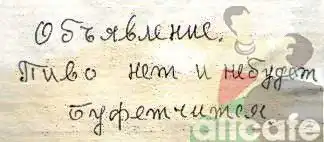 Объявление.
Пиво нет и небудет
Буфетчится
allcafe